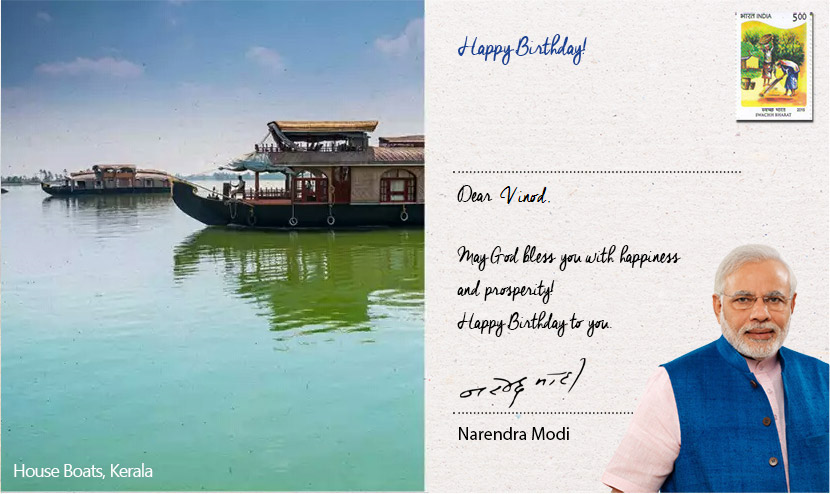 Happy Birthday!
भारत INDIA 500
स्वच्छ भारत 2015
SWACHH BHARAT
Dear Vinod,
May God bless you with happiness
and prosperity!
Happy Birthday to you.
नरेन्द्र मोदी
Narendra Modi
House Boats, Kerala